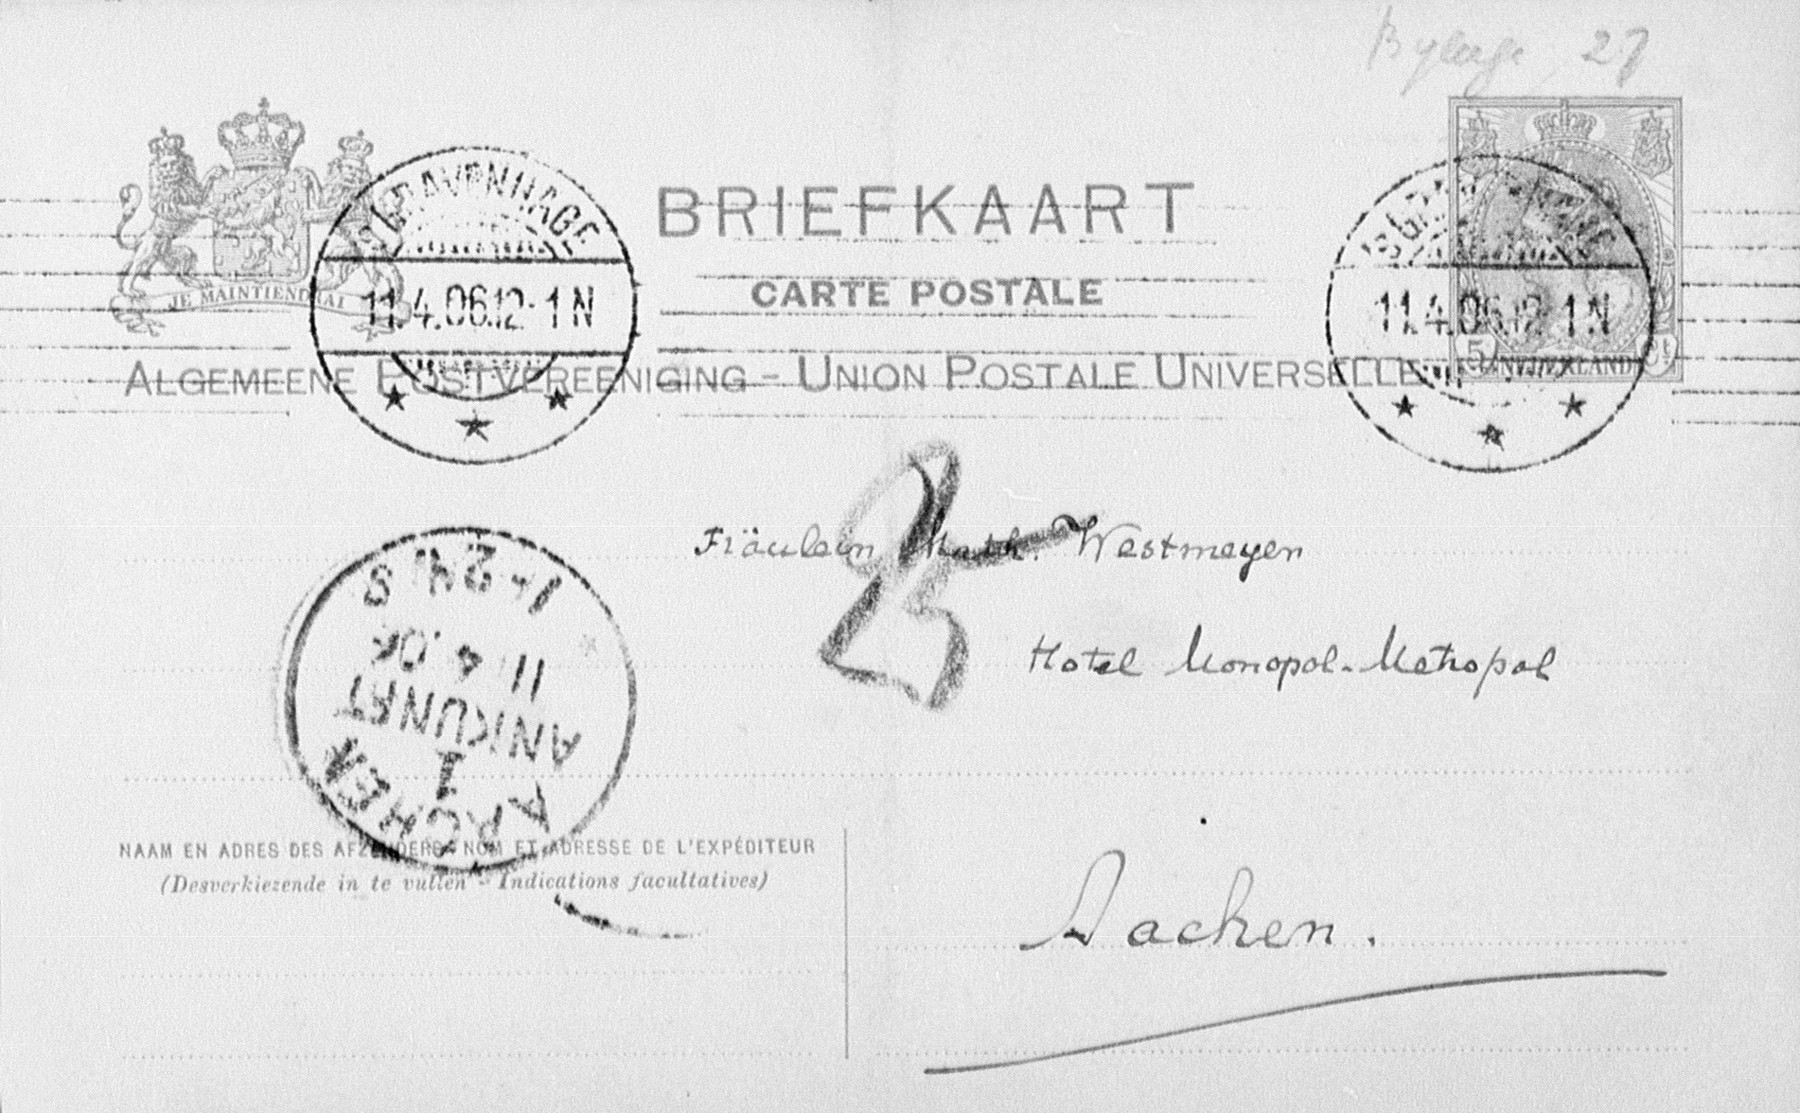 Bylage 27
BRIEFKAART
CARTE POSTALE
ALGEMEENE POSTVEREENIGING - UNION POSTALE UNIVERSELLE
JE MAINTIENDRAI
'S GRAVENHAGE
11.4.06.12-1N
'S GRAVENHAGE
11.4.06.12-1N
5 ct NEDERLAND 5 ct
Fräulein Math. Westmeyer
Hotel Monopol-Metropol
Aachen.
AACHEN
1
ANKUNFT
11 4 06
NAAM EN ADRES DES AFZENDERS - NOM ET ADRESSE DE L'EXPÉDITEUR
(Desverkiezende in te vullen - Indications facultatives)